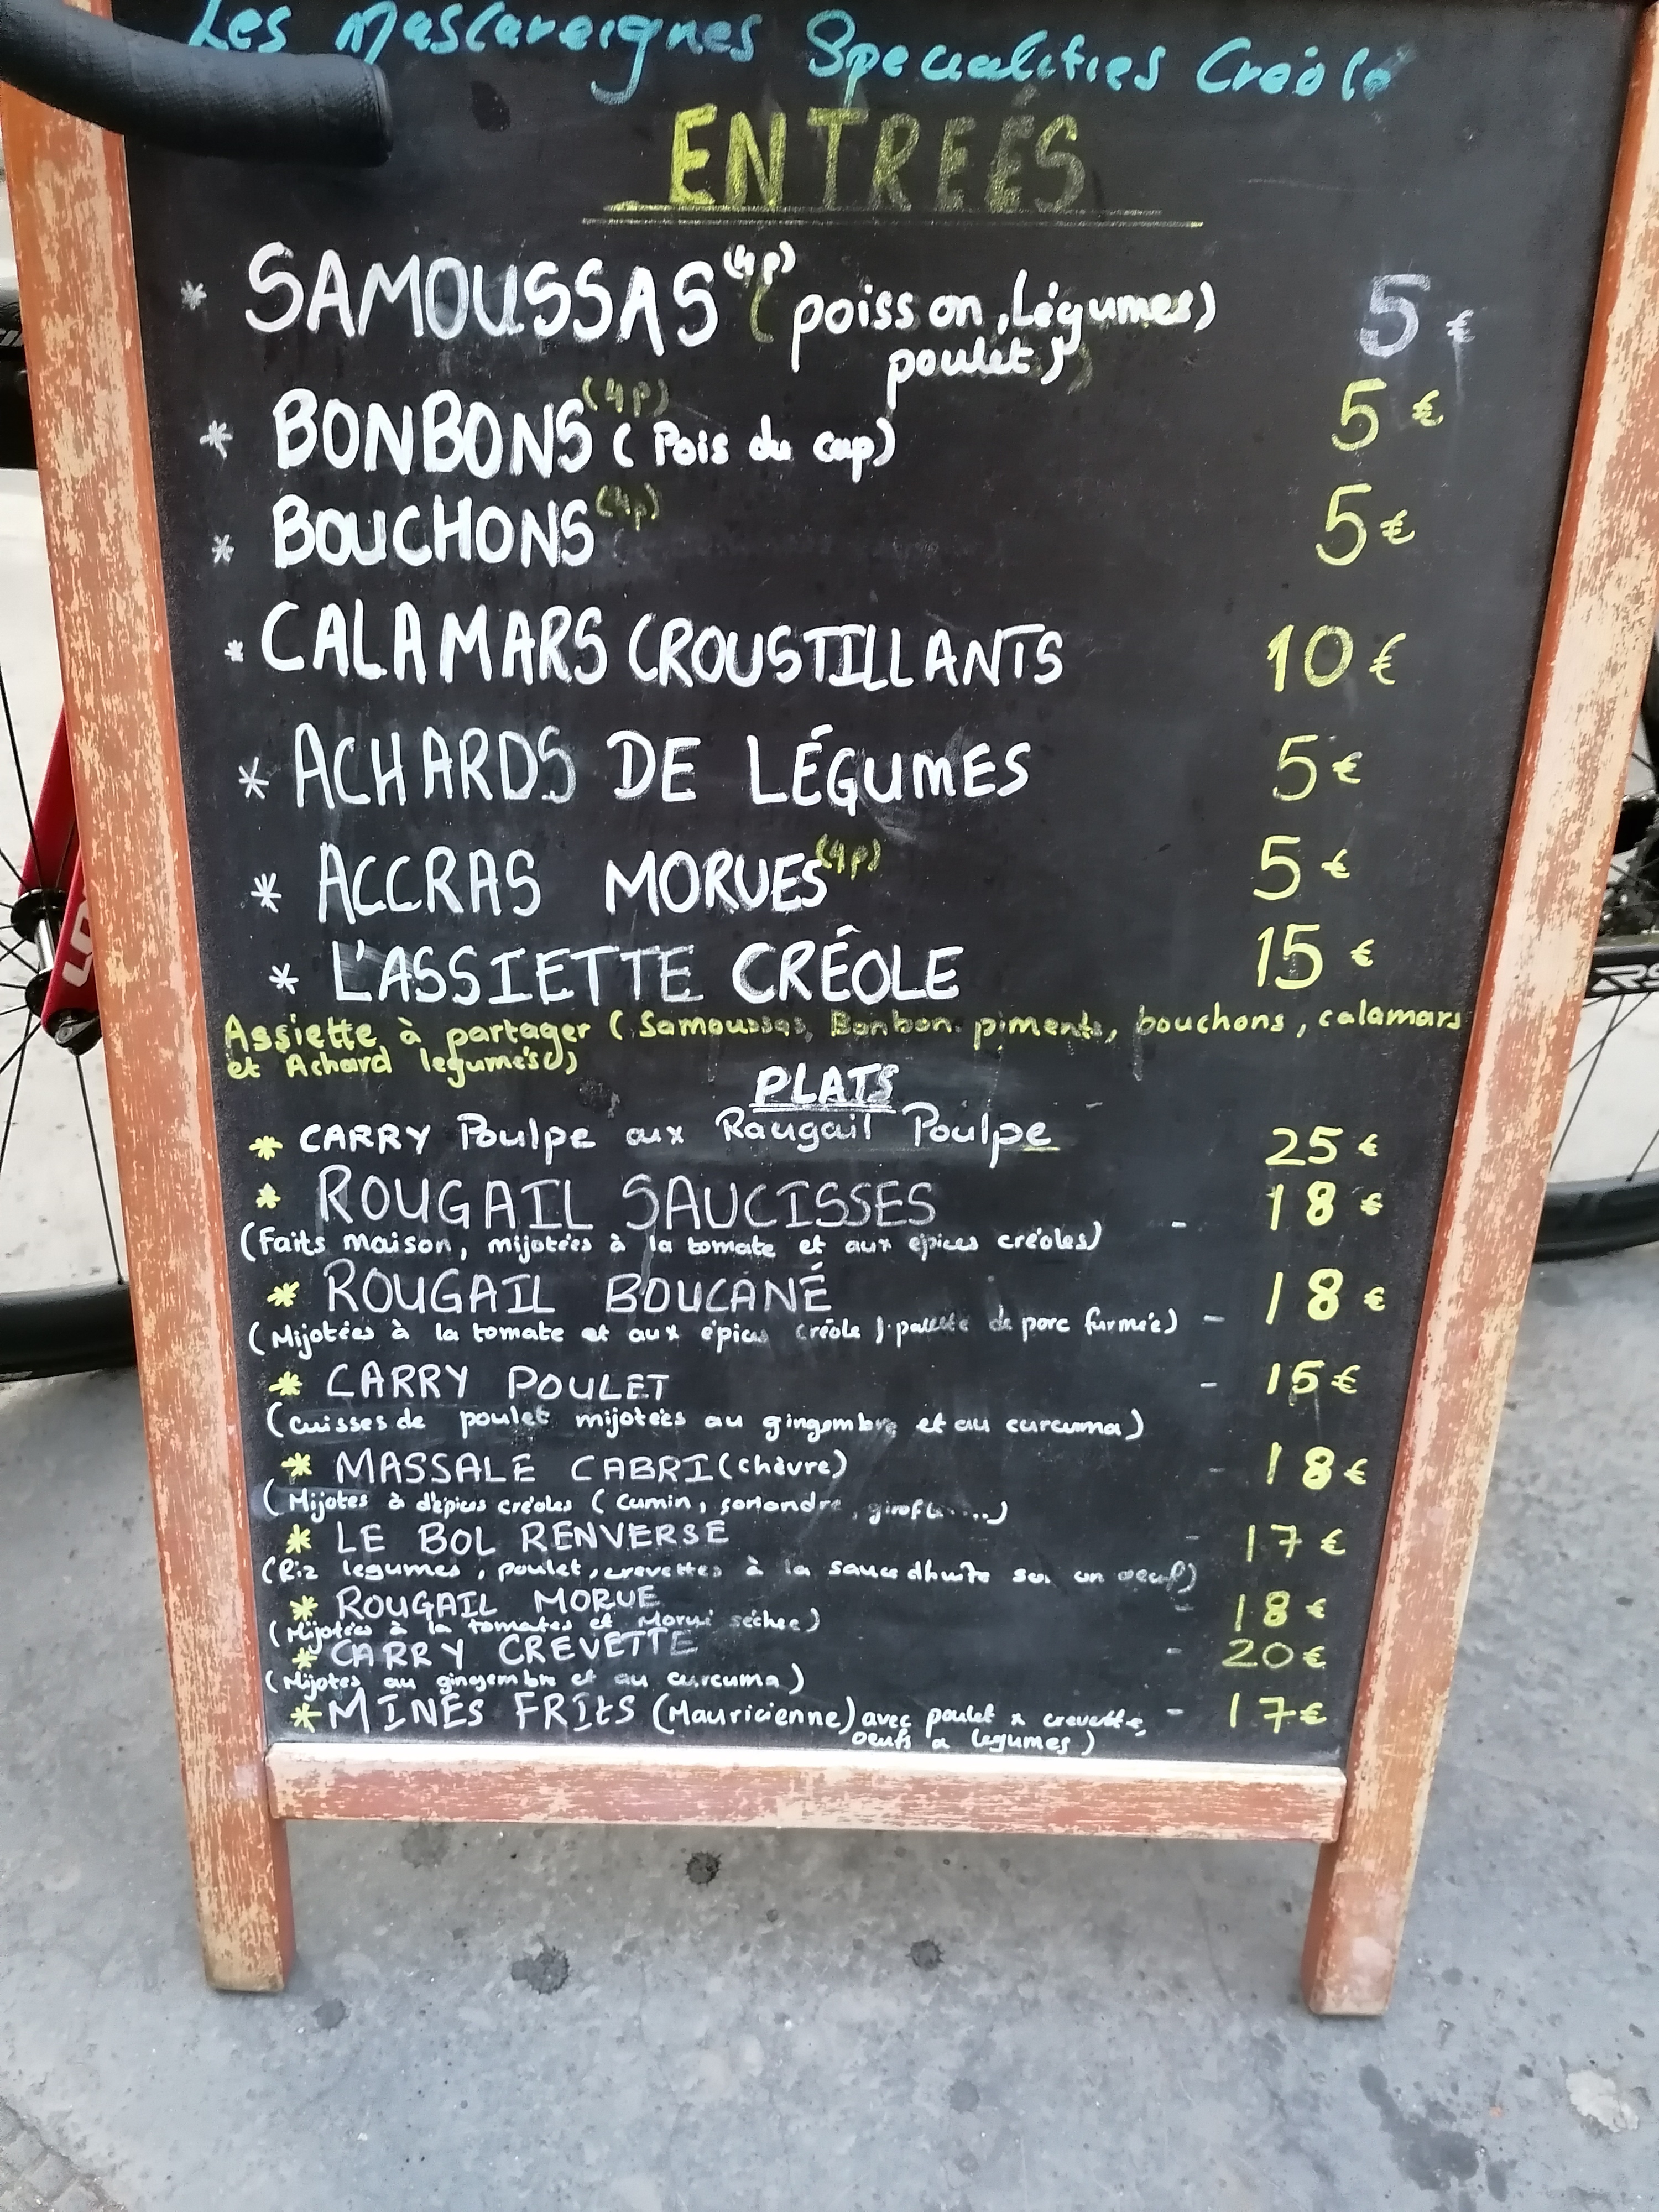 Les Mascareignes Specialities Créole
ENTREÉS
* SAMOUSSAS (4p) (poisson, Légumes) 5 €
poulet)
* BONBONS (4p) (Pois du cap) 5 €
* BOUCHONS (4p) 5 €
* CALAMARS CROUSTILLANTS 10 €
* ACHARDS DE LÉGUMES 5 €
* ACCRAS MORUES (4p) 5 €
* L'ASSIETTE CRÉOLE 15 €
Assiette à partager (Samoussas, Bonbon piments, bouchons, calamars
et Achard legumes)
PLATS
* CARRY Poulpe aux Raugail Poulpe 25 €
* ROUGAIL SAUCISSES - 18 €
(Faits maison, mijotées à la tomate et aux épices créoles)
* ROUGAIL BOUCANÉ - 18 €
(Mijotées à la tomate et aux épices créole) palette de porc furmée)
* CARRY POULET - 15 €
(Cuisses de poulet mijotées au gingembre et au curcuma)
* MASSALE CABRI (chèvre) - 18 €
(Mijotes à d'épices créoles (Cumin, coriandre, girofle....)
* LE BOL RENVERSÉ - 17 €
(Riz legumes, poulet, crevettes à la sauce dhuitre sur un oeuf)
* ROUGAIL MORUE - 18 €
(Mijotées à la tomates et Morue séchée)
* CARRY CREVETTE - 20 €
(Mijotes au gingembre et au curcuma)
* MINES FRITS (Mauricienne) avec poulet x crevette, - 17 €
oeufs a legumes)
RS